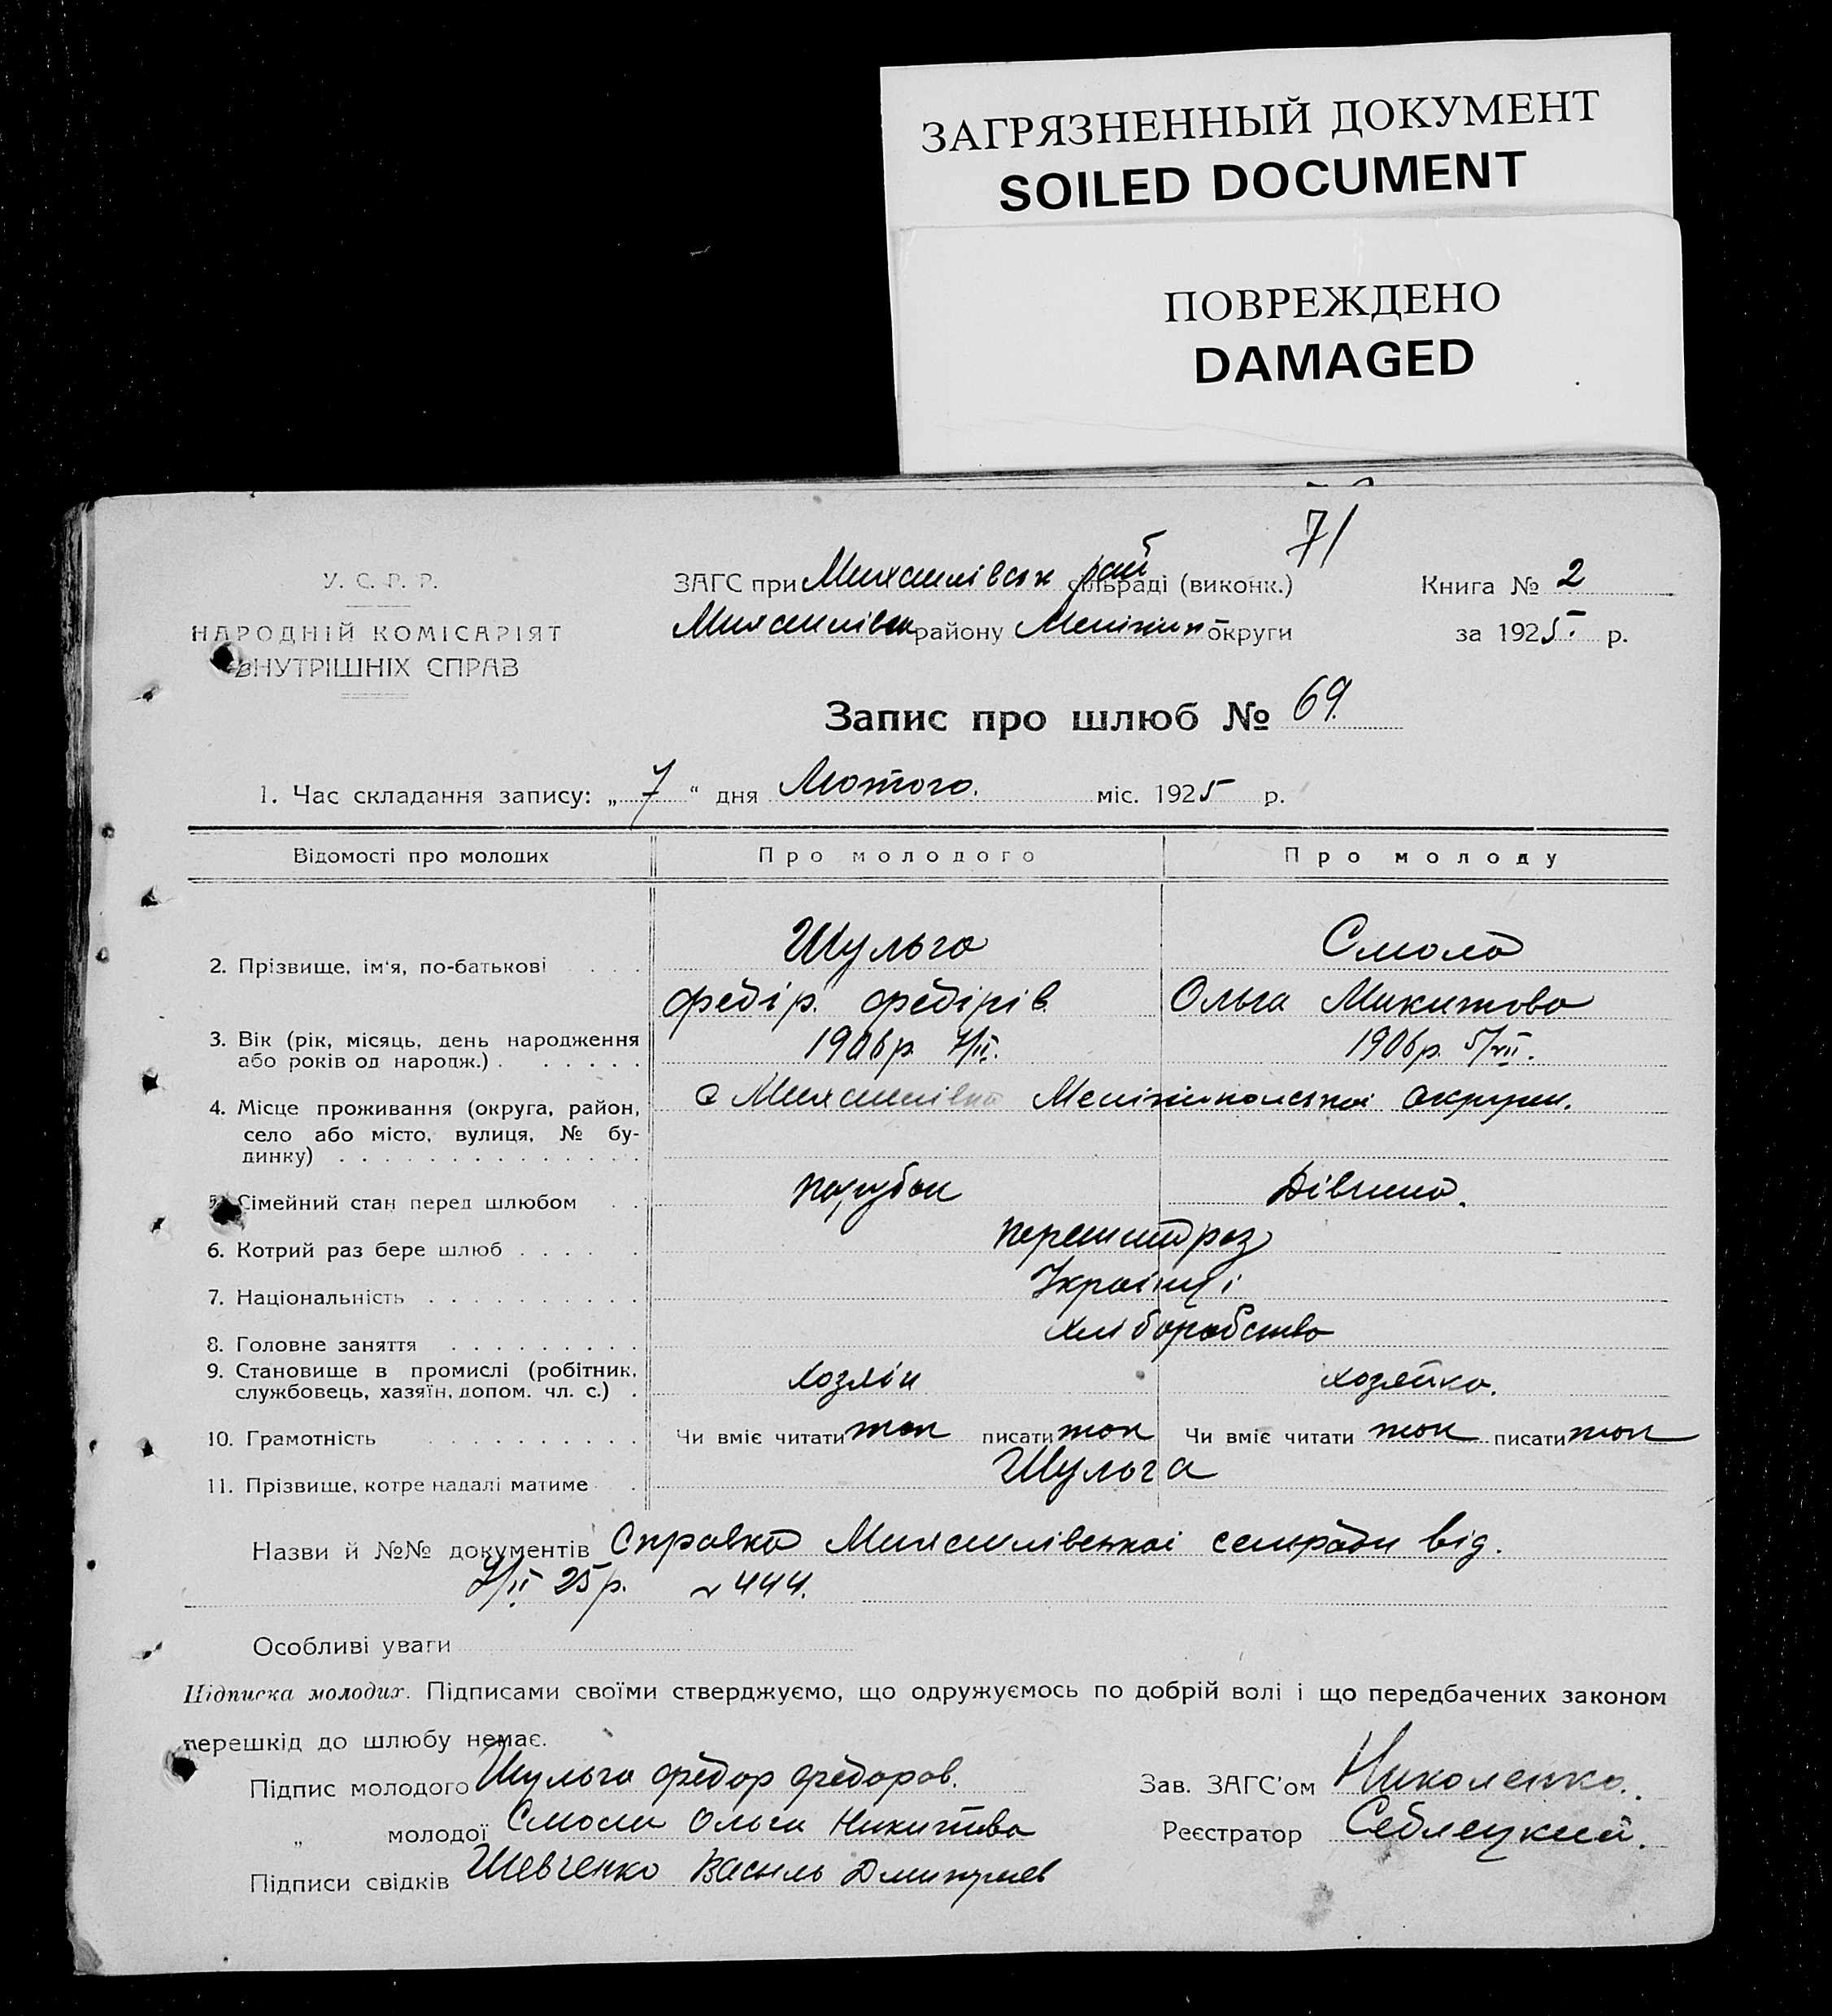 ЗАГРЯЗНЕННЫЙ ДОКУМЕНТ
SOILED DOCUMENT
ПОВРЕЖДЕНО
DAMAGED
71
У. С. Р. Р.
НАРОДНІЙ КОМІСАРІЯТ
ВНУТРІШНІХ СПРАВ
ЗАГС при Михайлівськ рай сільраді (виконк.)
Михайлівськ району Мелітоп округи
Книга № 2
за 1925 р.
Запис про шлюб № 69.
1. Час складання запису: „ 7 “ дня Лютого. міс. 1925 р.
Відомості про молодих Про молодого Про молоду
2. Прізвище, ім'я, по-батькові Шульга Смола
Федір. Федірів. Ольга Микитова
3. Вік (рік, місяць, день народження 1906 р. 1906 р. 5/VII.
або років од народж.)
4. Місце проживання (округа, район, с Михайлівка Мелітопольської округи.
село або місто, вулиця, № бу-
динку)
5. Сімейний стан перед шлюбом парубок Дівчина.
6. Котрий раз бере шлюб перший раз
7. Національність Українці
8. Головне заняття хліборобство
9. Становище в промислі (робітник, хозяїн хозяйка.
службовець, хазяїн, допом. чл. с.)
10. Грамотність Чи вміє читати так писати так Чи вміє читати так писати так
11. Прізвище, котре надалі матиме Шульга
Назви й №№ документів Справка Михайлівської сельради від.
/II 25 р. № 444.
Особливі уваги
Підписка молодих. Підписами своїми стверджуємо, що одружуємось по добрій волі і що передбачених законом
перешкід до шлюбу немає.
Підпис молодого Шульга Федор Федоров. Зав. ЗАГС'ом Николенко.
„ молодої Смола Ольга Никитова Реєстратор
Підписи свідків Шевченко Василь Дмитриев